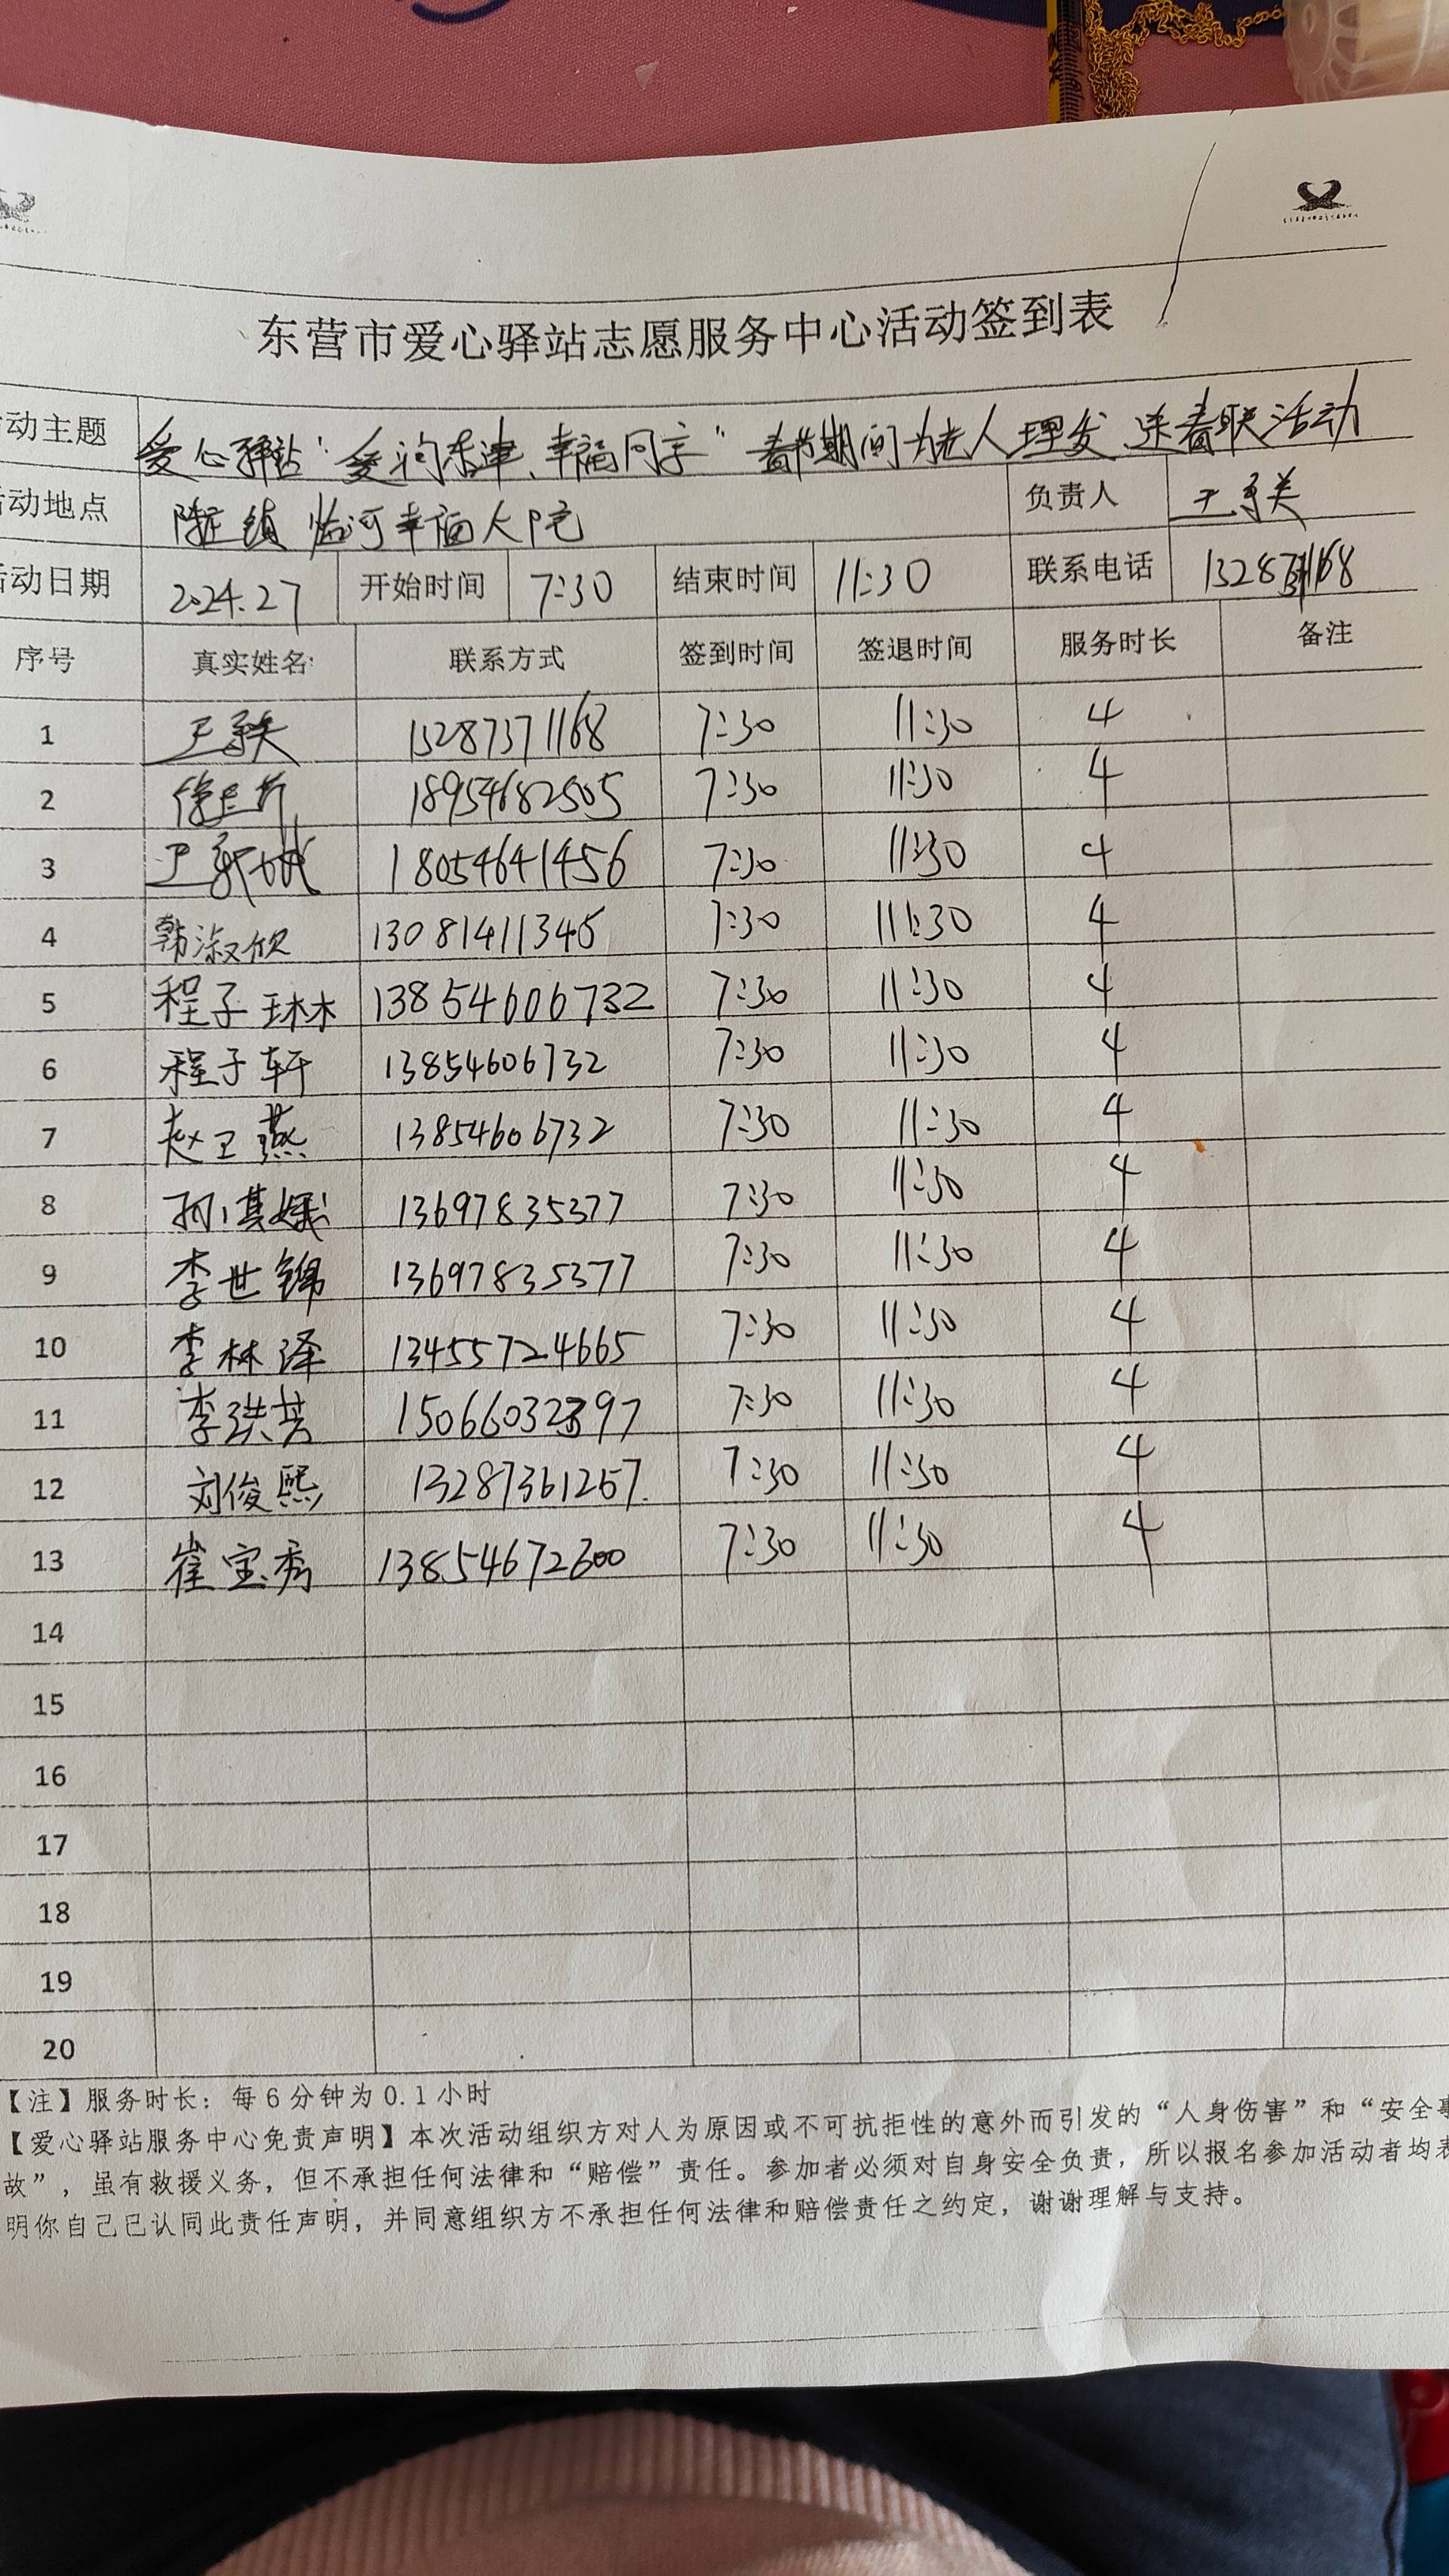 东营市爱心驿站志愿服务中心活动签到表
动主题 爱心驿站“爱润东津、幸福同享”春节期间为老人理发 送春联活动
动地点 陈庄镇临河幸福大院 负责人
动日期 2024.27 开始时间 7:30 结束时间 11:30 联系电话
序号 真实姓名 联系方式 签到时间 签退时间 服务时长 备注
1 15287371168 7:30 11:30 4
2 18954682505 7:30 11:30 4
3 18054641456 7:30 11:30 4
4 韩淑欣 13081411345 7:30 11:30 4
5 程子琳 13854606732 7:30 11:30 4
6 程子轩 13854606732 7:30 11:30 4
7 赵卫燕 13854606732 7:30 11:30 4
8 13697835377 7:30 11:30 4
9 李世锦 13697835377 7:30 11:30 4
10 李林泽 13455724665 7:30 11:30 4
11 李洪芸 7:30 11:30 4
12 刘俊熙 13287361267 7:30 11:30 4
13 崔宝秀 13854672600 7:30 11:30 4
14
15
16
17
18
19
20
【注】服务时长：每6分钟为0.1小时
【爱心驿站服务中心免责声明】本次活动组织方对人为原因或不可抗拒性的意外而引发的“人身伤害”和“安全事
故”，虽有救援义务，但不承担任何法律和“赔偿”责任。参加者必须对自身安全负责，所以报名参加活动者均表
明你自己已认同此责任声明，并同意组织方不承担任何法律和赔偿责任之约定，谢谢理解与支持。